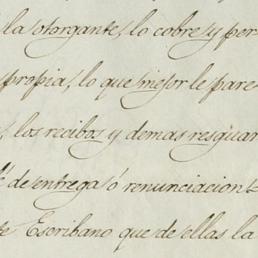 la otorgante, lo cobre, y per
propia, lo que mejor le pare
, los recibos y demas resguar
de entrega ó renunciacion
Escribano que de ellas la